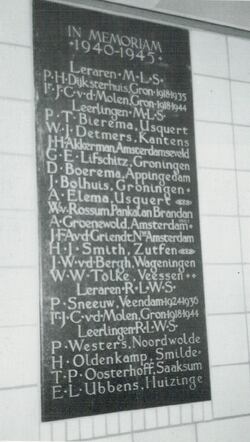 IN MEMORIAM
·1940-1945·
Leraren·M·L·S·
P·H·Dijksterhuis, Gron·1918·1935
Ir·J·C·v·d·Molen, Gron·1918·1944
Leerlingen·M·L·S
P·T·Bierema, Usquert
W·J·Detmers, Kantens
J·H·Akkerman, Amsterdamseveld
G·E·Lifschitz, Groningen
D·Boerema, Appingedam
J·Bolhuis, Groningen·
A·Elema, Usquert
W·v·Rossum, Pankalan Brandan
A·Groenewold, Amsterdam·
J·F·A·v·d·Griendt, Nw Amsterdam
H·J·Smith, Zutfen
J·W·v·d·Bergh, Wageningen
W·W·Tolke, Veessen
Leraren·R·L·W·S·
P·Sneeuw, Veendam·1924·1936
Ir·J·C·v·d·Molen, Gron·1918·1944
Leerlingen·R·L·W·S
P·Westers, Noordwolde
H·Oldenkamp, Smilde·
T·P·Oosterhoff, Saaksum
E·L·Ubbens, Huizinge